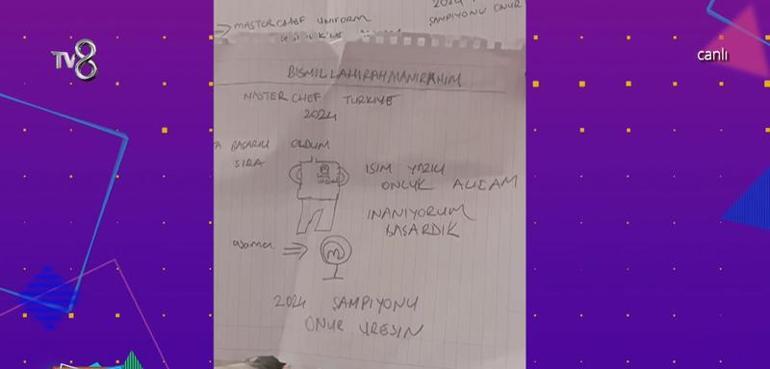 TV8
canlı
2024
→ MASTERCHEF UNIFORM
ŞAMPİYONU ONUR
BISMILLAHIRAHMANIRAHIM
MASTERCHEF TURKIYE
2024
BASARILI OLDUM
SIRA
ISIM YAZILI
ONLUK ALICAM
INANIYORUM
BASARDIK
⇒ m
2024 SAMPIYONU
ONUR URESIN